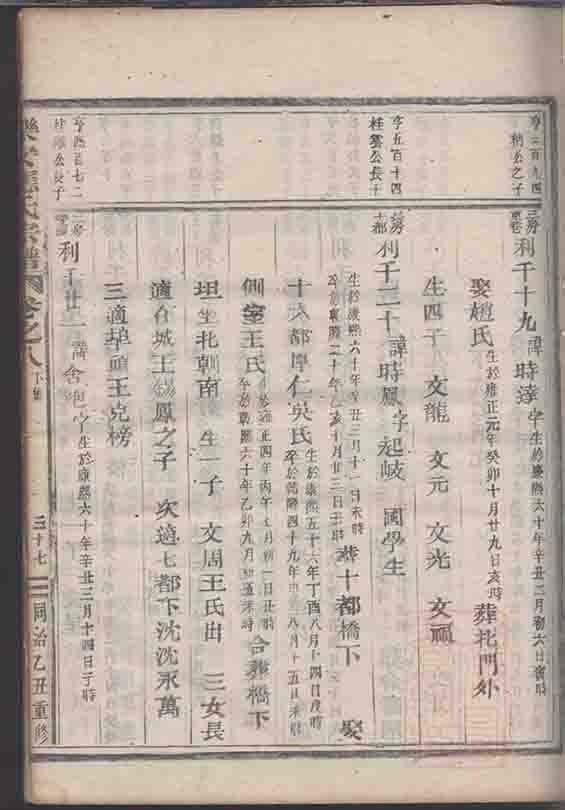 亨二百九四
公之子
三房
利千十九諱時達字
生於康熙六十年辛丑二月初六日寅時
娶趙氏
生於雍正元年癸卯十月廿九日亥時
葬北門外
生四子 文龍 文元 文光 文福
亨五百十四
桂雲公長子
利千二十諱時鳳字起岐 國學生
生於康熙六十年辛丑三月十一日未時
卒於乾隆二十年乙亥十月廿三日丑時
葬十都橋下 娶
十八都厚仁吳氏
生於康熙五十六年丁酉八月十四日戌時
卒於乾隆四十九年甲 八月十五日未時
側室王氏
生於雍正四年丙午 月初一日 時
卒於乾隆六十年乙卯九月初五未時
合葬橋下
坦坐北朝南 生一子 文周王氏出 三女長
適在城王錫鳳之子 次適七都下沈沈永萬
三適埠頭王兌榜
亨 百七二
桂 公長子
利千廿一諱舍 字
生於康熙六十年辛丑三月十四日子時
樂安 氏宗譜 卷之八
三十七
同治乙丑重修